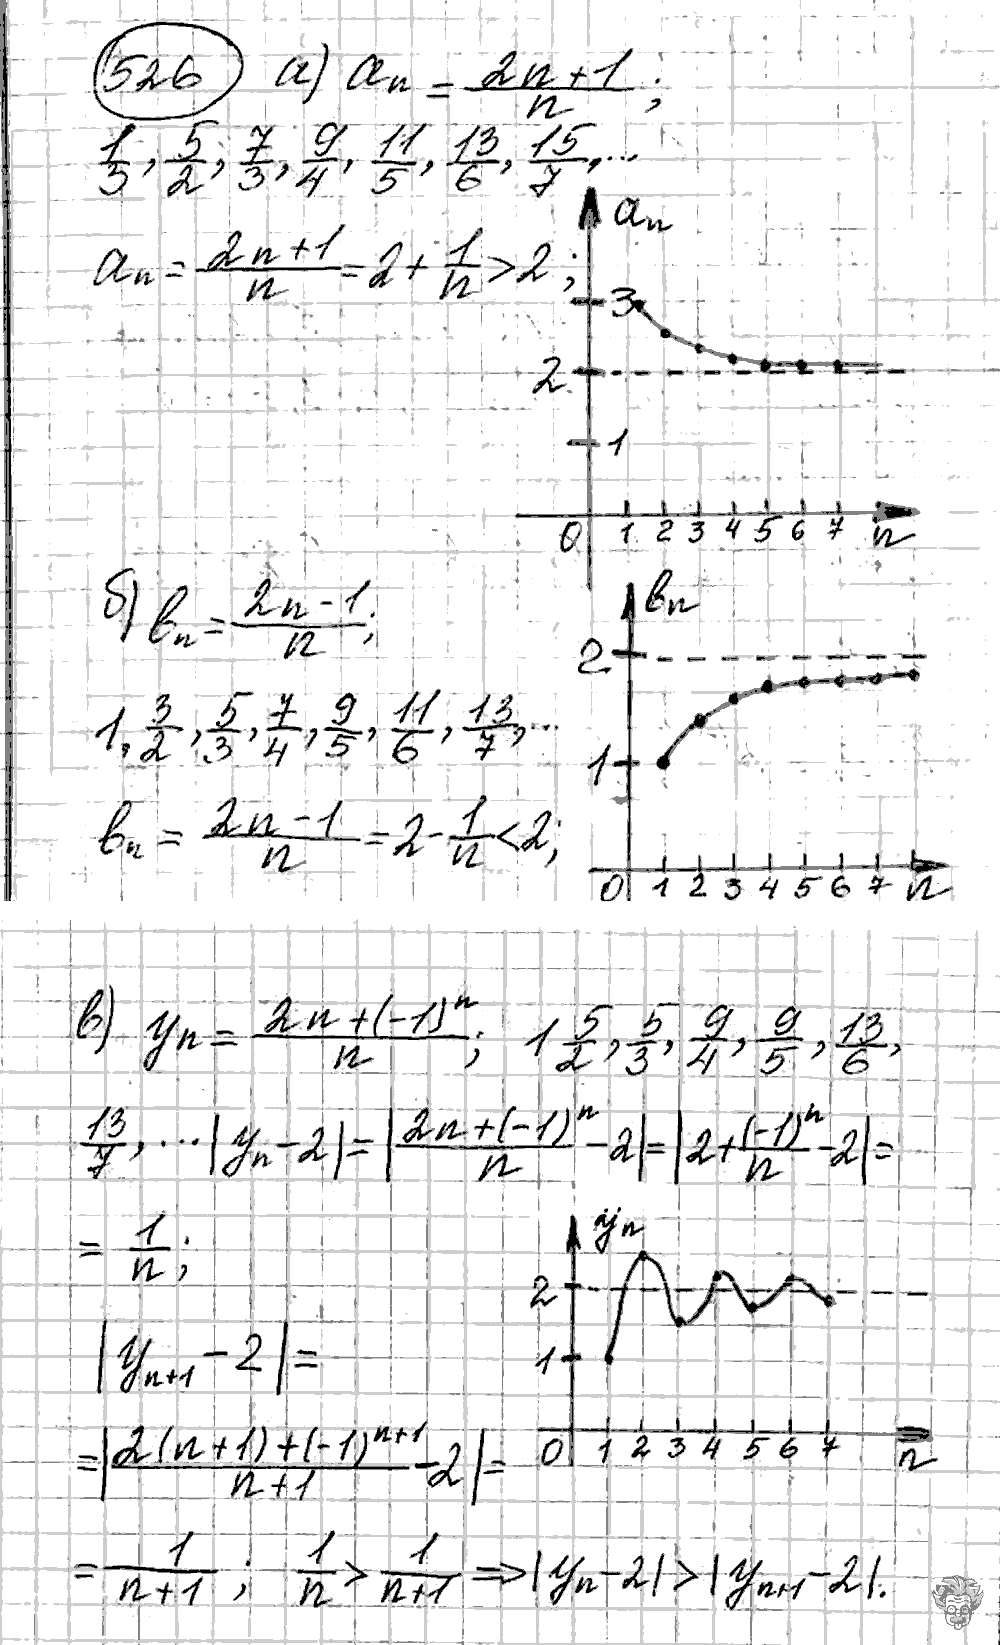 526 а) aₙ = (2n+1)/n;
1/3, 5/2, 7/3, 9/4, 11/5, 13/6, 15/7, ...
aₙ = (2n+1)/n = 2 + 1/n > 2;
aₙ
3
2
1
0 1 2 3 4 5 6 7 n
б) bₙ = (2n-1)/n;
1, 3/2, 5/3, 7/4, 9/5, 11/6, 13/7, ...
bₙ = (2n-1)/n = 2 - 1/n < 2;
bₙ
2
1
0 1 2 3 4 5 6 7 n
в) yₙ = (2n+(-1)ⁿ)/n; 1 5/2, 5/3, 9/4, 9/5, 13/6,
13/7, ... |yₙ - 2| = |(2n+(-1)ⁿ)/n - 2| = |2 + (-1)ⁿ/n - 2| =
= 1/n;
|yₙ₊₁ - 2| =
= |(2(n+1)+(-1)ⁿ⁺¹)/(n+1) - 2| =
= 1/(n+1); 1/n > 1/(n+1) => |yₙ - 2| > |yₙ₊₁ - 2|.
yₙ
2
1
0 1 2 3 4 5 6 7 n